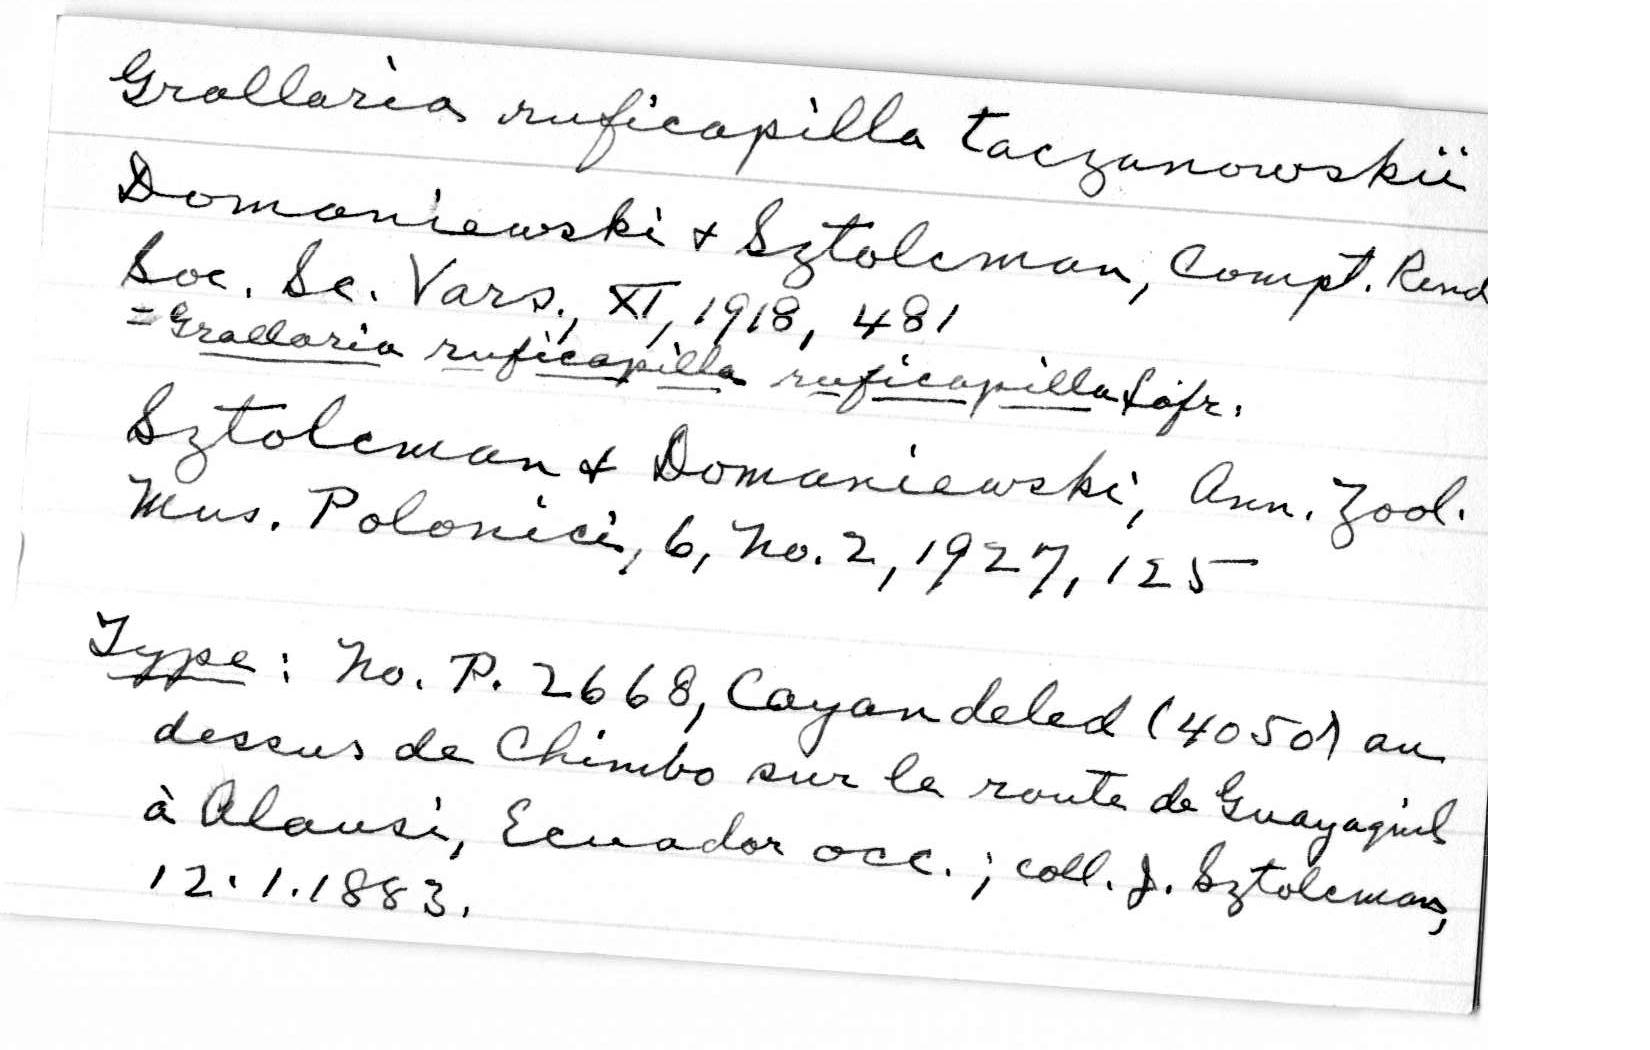 Grallaria ruficapilla taczanowskii
Domaniewski + Sztolcman, Compt. Rend
Soc. Sc. Vars., XI, 1918, 481
=Grallaria ruficapilla ruficapilla Lafr.
Sztolcman + Domaniewski, Ann. Zool.
Mus. Polonici, 6, No. 2, 1927, 125
Type: No. P. 2668, Cayandeled (4050') au
dessus de Chimbo sur la route de Guayaquil
à Alausi, Ecuador occ.; coll. J. Sztolcman,
12.1.1883.